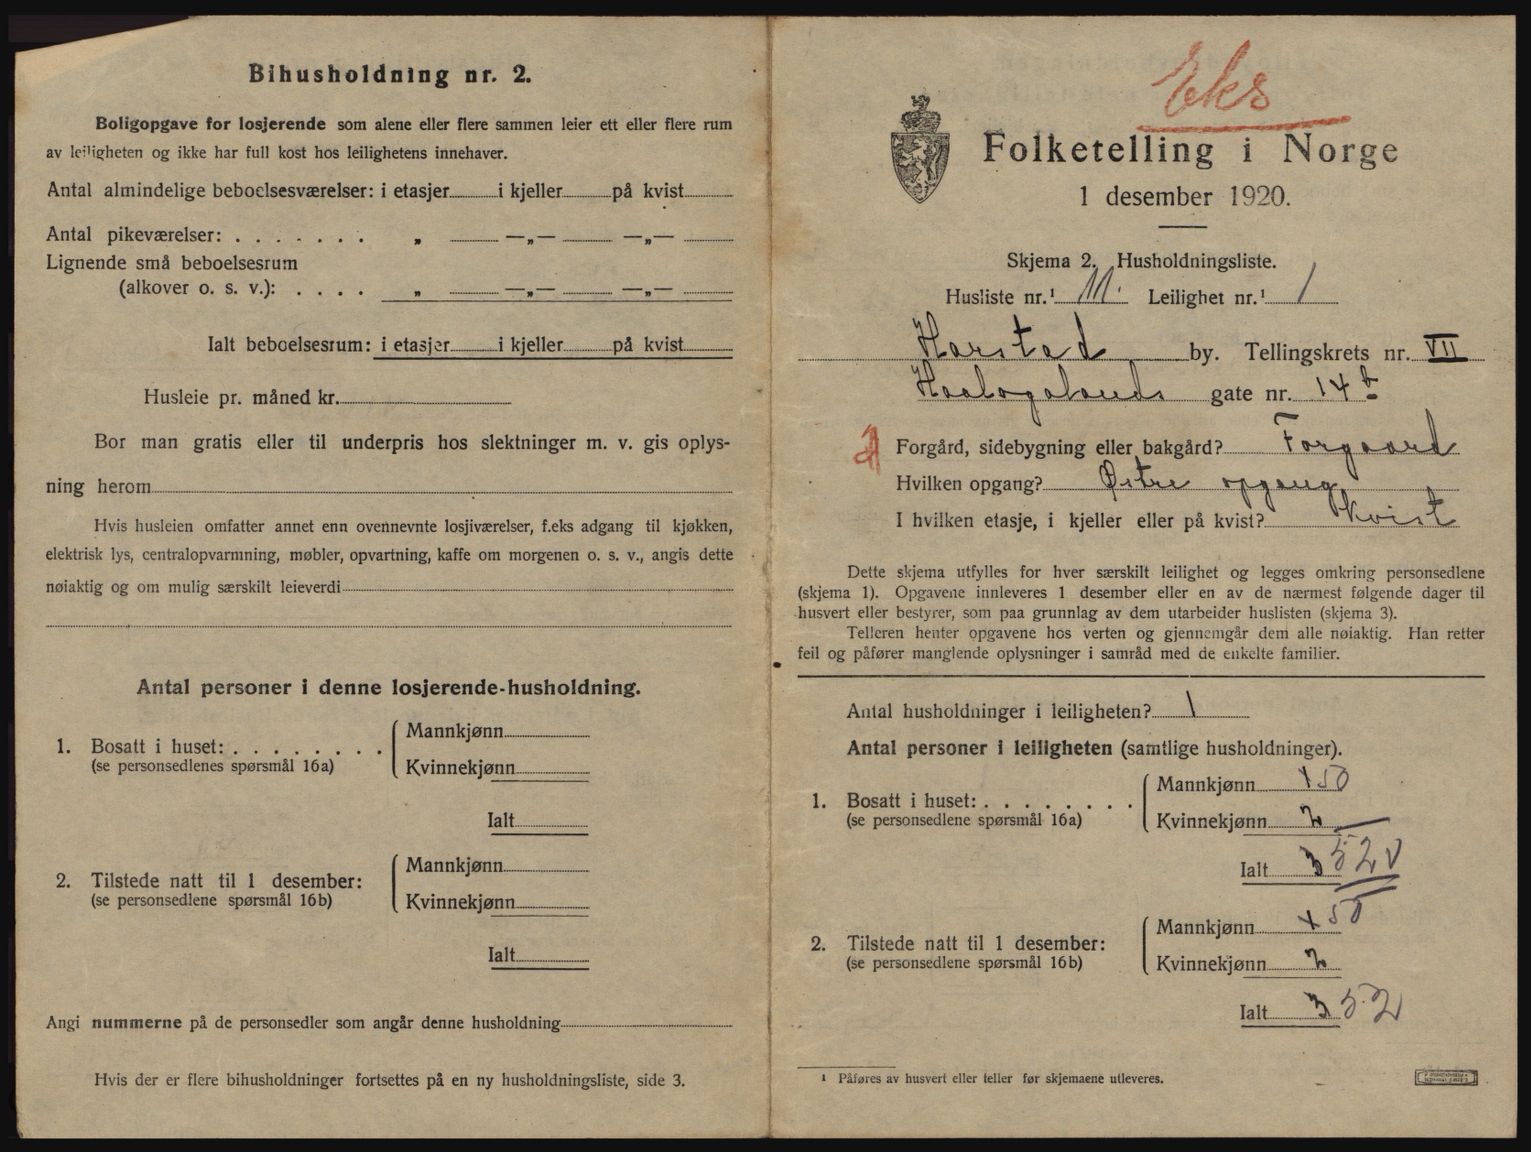 Bihusholdning nr. 2.
Boligopgave for losjerende som alene eller flere sammen leier ett eller flere rum
av leiligheten og ikke har full kost hos leilighetens innehaver.
Antal almindelige beboelsesværelser: i etasjer i kjeller på kvist
Antal pikeværelser: . . . . . . . „ —„— —„—
Lignende små beboelsesrum
(alkover o. s. v.): . . . . „ —„— —„—
Ialt beboelsesrum: i etasjer i kjeller på kvist
Husleie pr. måned kr.
Bor man gratis eller til underpris hos slektninger m. v. gis oplys-
ning herom
Hvis husleien omfatter annet enn ovennevnte losjiværelser, f.eks adgang til kjøkken,
elektrisk lys, centralopvarmning, møbler, opvartning, kaffe om morgenen o. s. v., angis dette
nøiaktig og om mulig særskilt leieverdi
Antal personer i denne losjerende-husholdning.
1. Bosatt i huset: . . . . . . . .
(se personsedlenes spørsmål 16a)
Mannkjønn
Kvinnekjønn
Ialt
2. Tilstede natt til 1 desember:
(se personsedlene spørsmål 16b)
Mannkjønn
Kvinnekjønn
Ialt
Angi nummerne på de personsedler som angår denne husholdning
Hvis der er flere bihusholdninger fortsettes på en ny husholdningsliste, side 3.
Eks
Folketelling i Norge
1 desember 1920.
Skjema 2. Husholdningsliste.
Husliste nr.¹ 11. Leilighet nr.¹ 1
Harstad by. Tellingskrets nr. VII
Haalogalands gate nr. 14 b
Forgård, sidebygning eller bakgård? Forgaard
Hvilken opgang? Østre opgang
I hvilken etasje, i kjeller eller på kvist? Kvist
Dette skjema utfylles for hver særskilt leilighet og legges omkring personsedlene
(skjema 1). Opgavene innleveres 1 desember eller en av de nærmest følgende dager til
husvert eller bestyrer, som paa grunnlag av dem utarbeider huslisten (skjema 3).
Telleren henter opgavene hos verten og gjennemgår dem alle nøiaktig. Han retter
feil og påfører manglende oplysninger i samråd med de enkelte familier.
Antal husholdninger i leiligheten? 1
Antal personer i leiligheten (samtlige husholdninger).
1. Bosatt i huset: . . . . . . . .
(se personsedlene spørsmål 16a)
Mannkjønn 1 50
Kvinnekjønn 2
Ialt 3 52 v
2. Tilstede natt til 1 desember:
(se personsedlene spørsmål 16b)
Mannkjønn 1 50
Kvinnekjønn 2
Ialt 3 52
¹ Påføres av husvert eller teller før skjemaene utleveres.